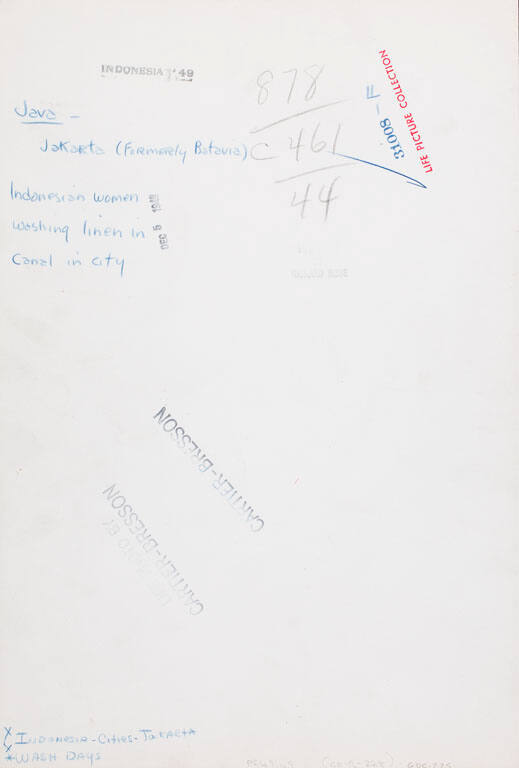 INDONESIA '49
878
C 461
44
31008-F
LIFE PICTURE COLLECTION
Java -
Jakarta (Formerly Batavia)
Indonesian women
washing linen in
Canal in city
CARTIER-BRESSON
PHOTO BY
CARTIER-BRESSON
Indonesia-Cities-Jakarta
*Wash Days